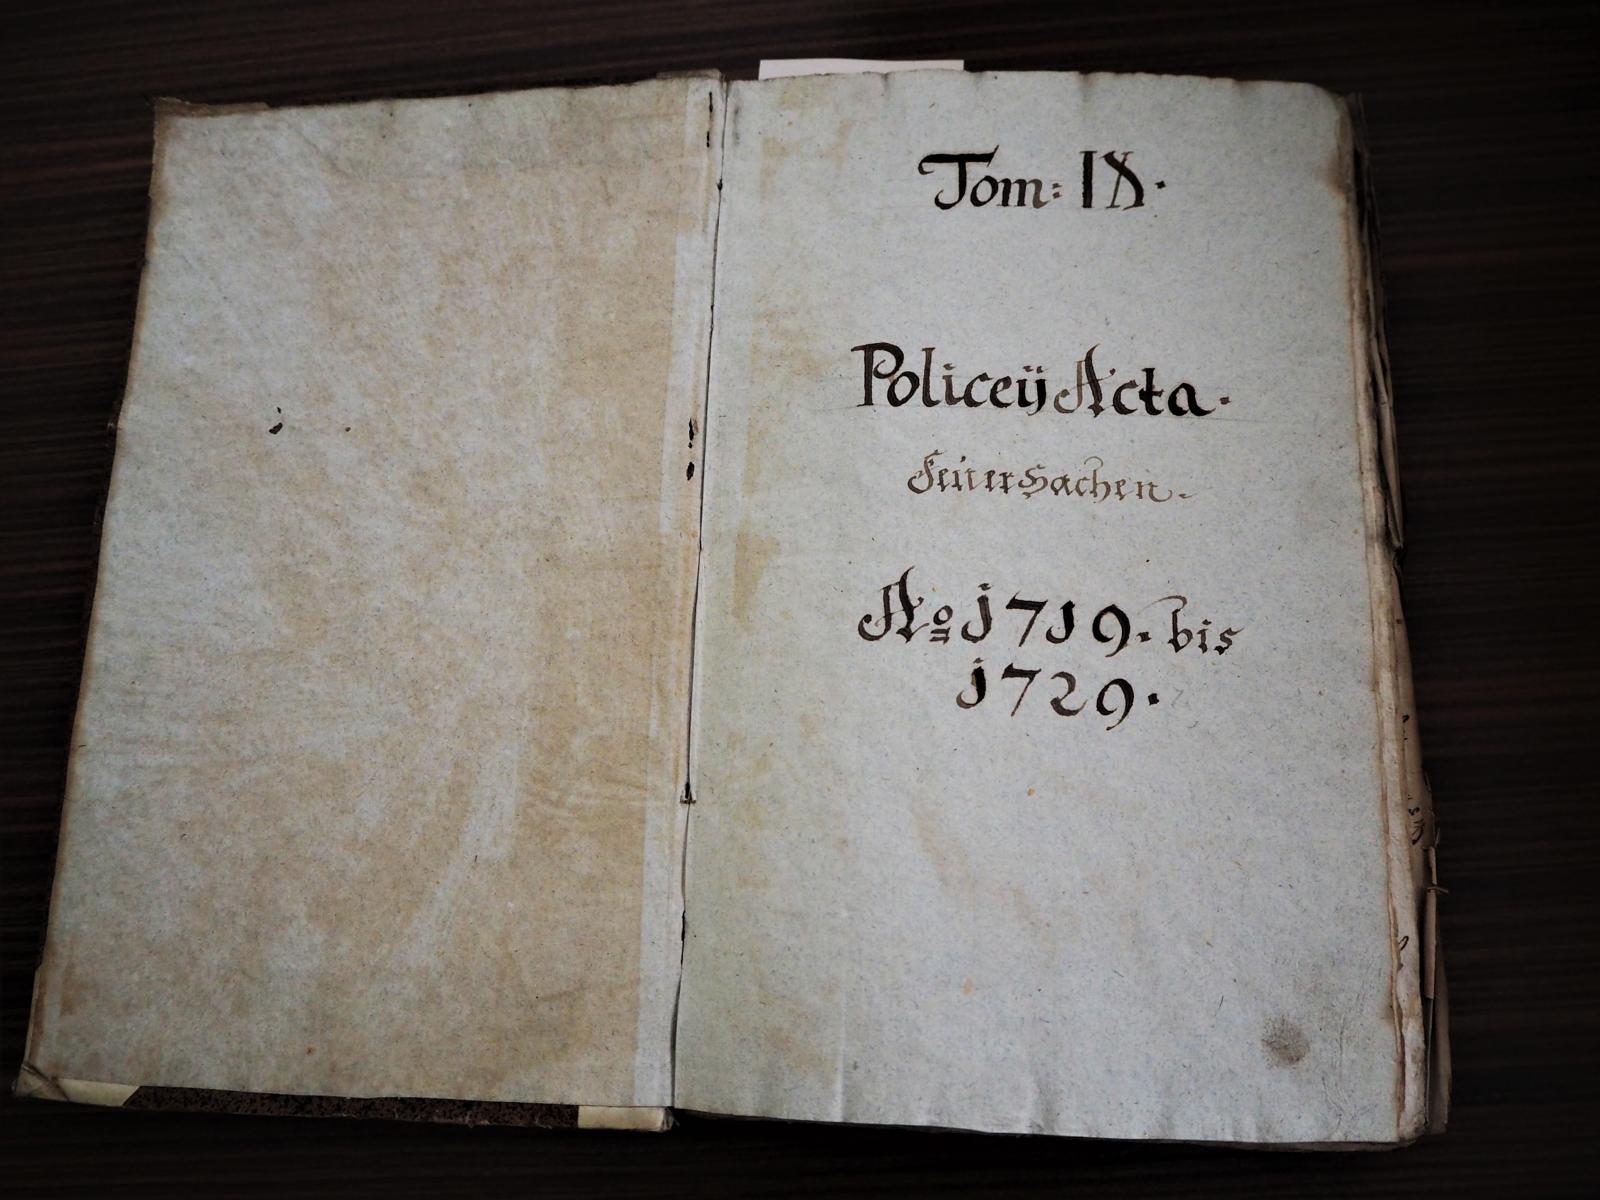 Tom: IX.
Policeÿ Acta.
Feüer Sachen.
Aº 1719. bis
1729.